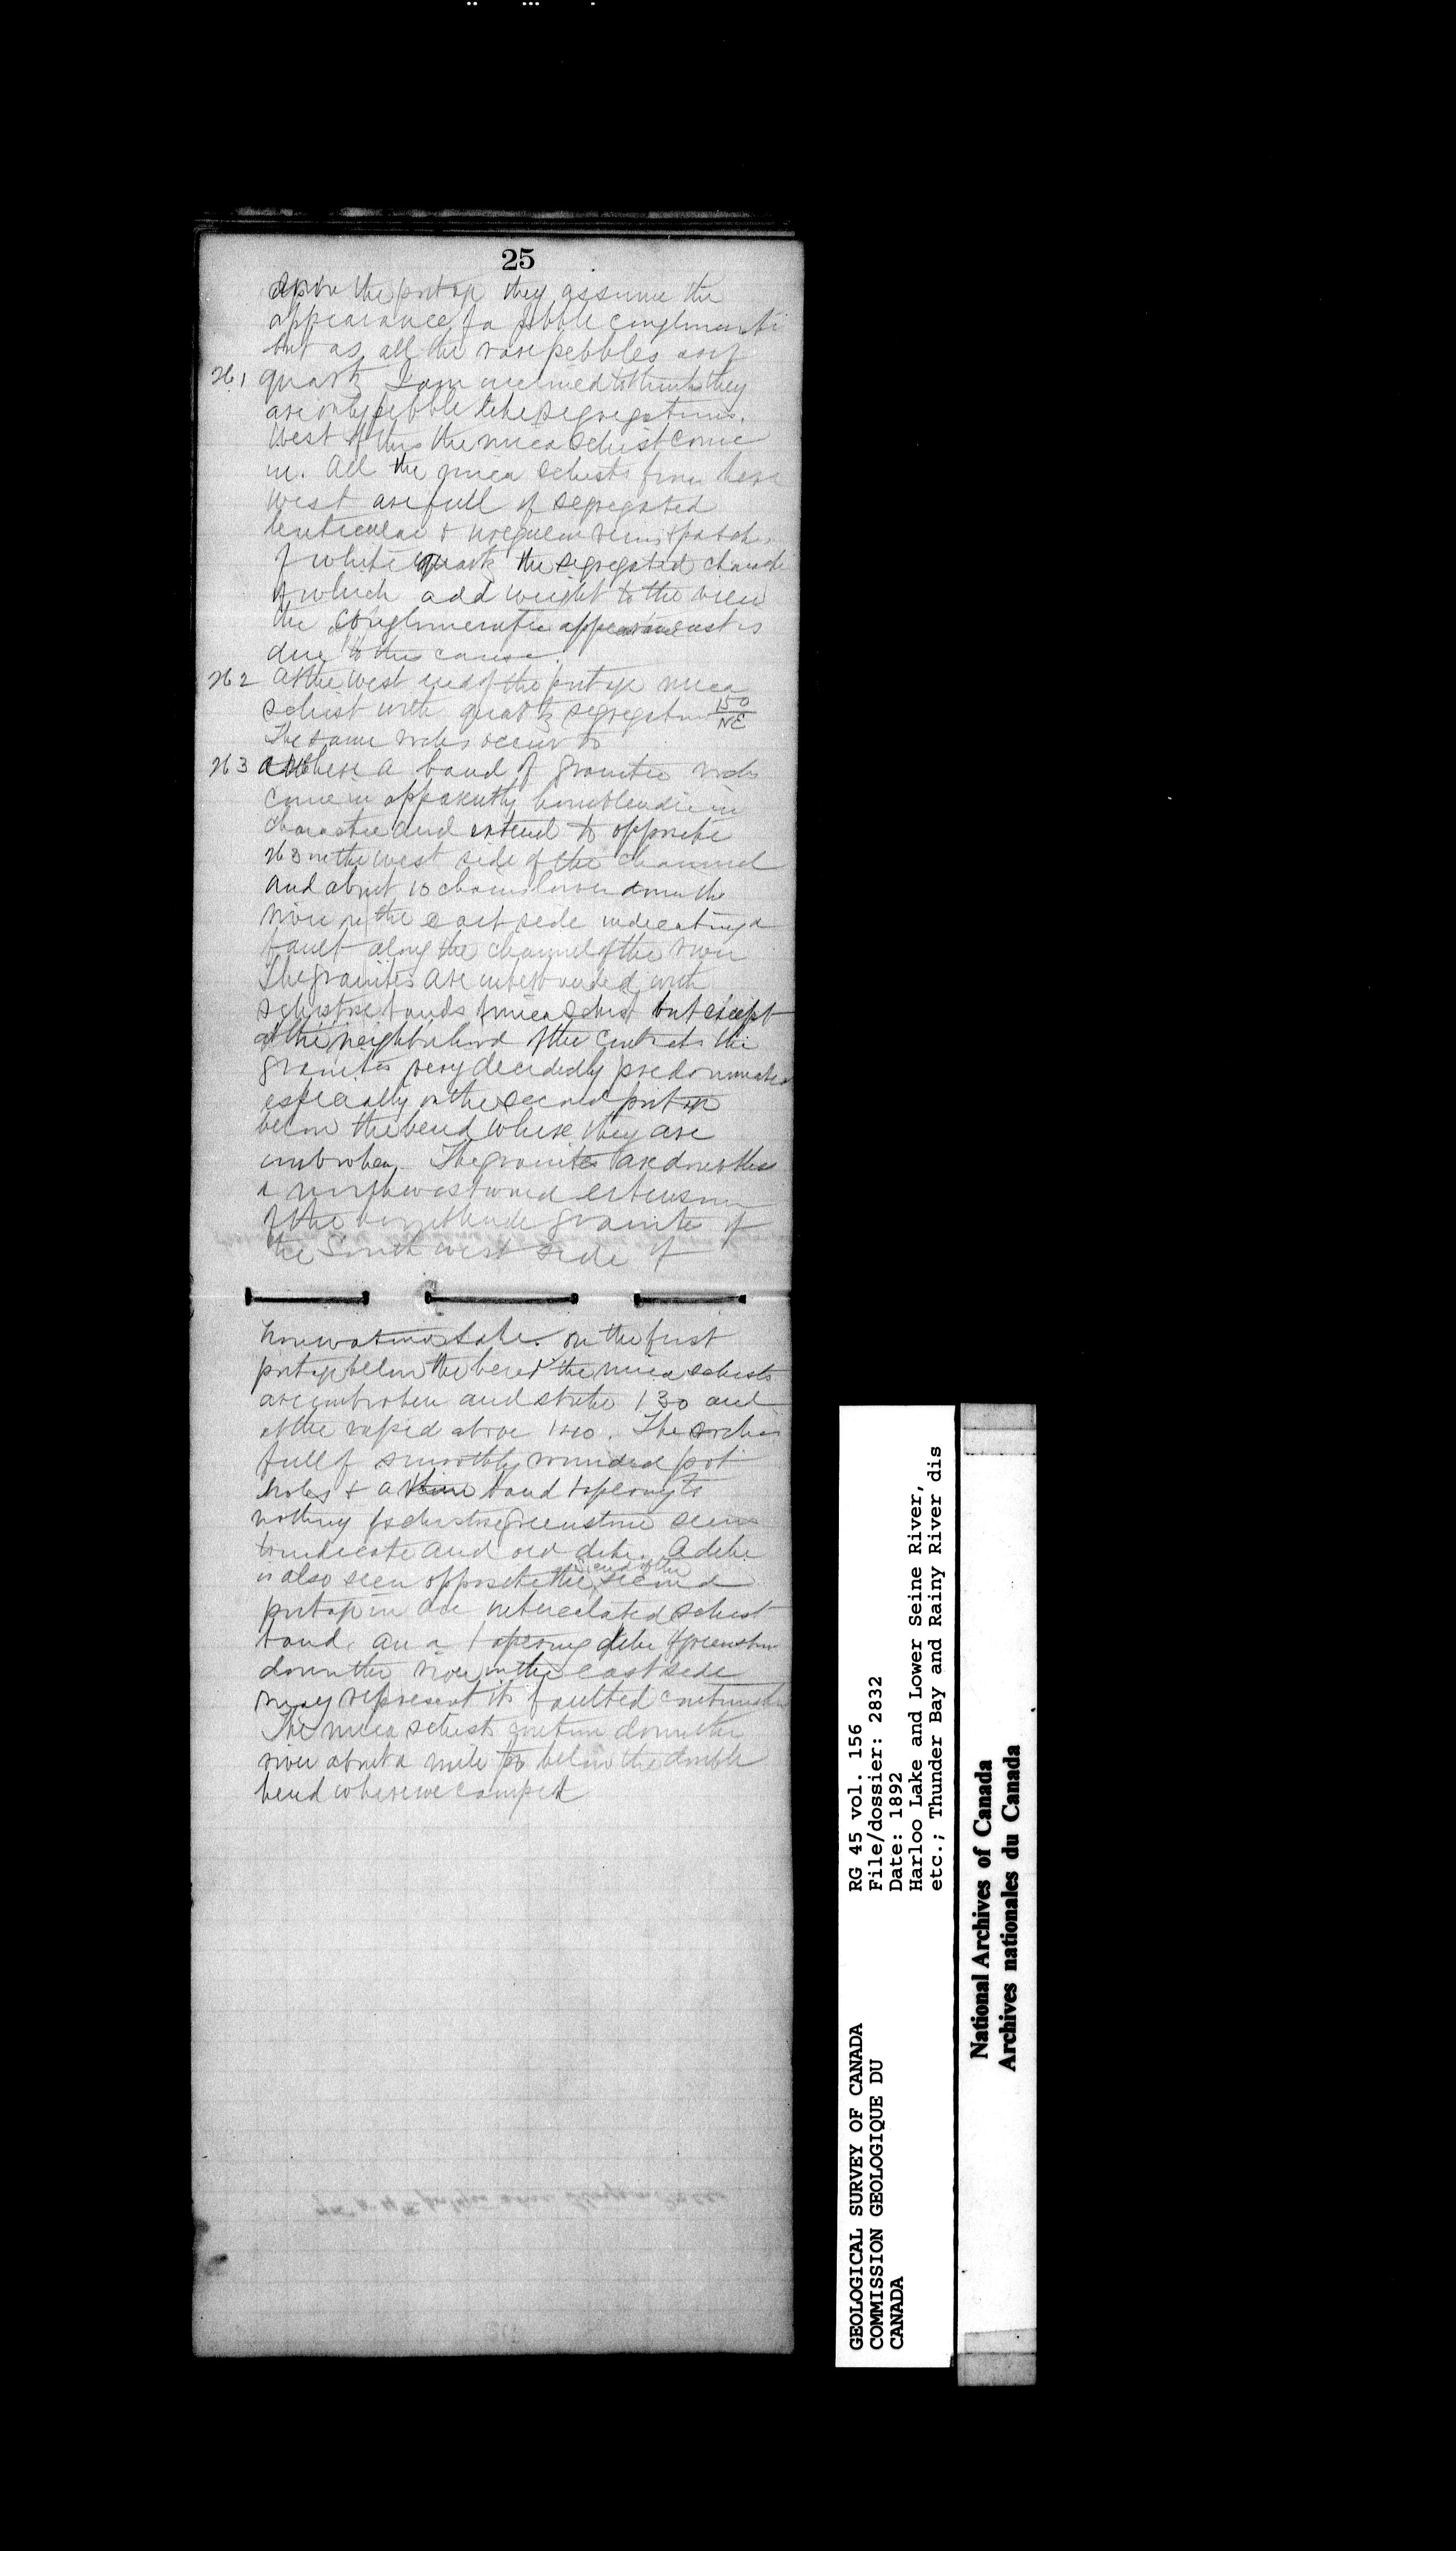 25
above the portage they assume the
appearance of a pebble conglomerate
but as all the rare pebbles are of
H 1 quartz I am inclined to think they
are only pebble like segregations.
West of this the mica schist come
in. All the mica schists from here
west are full of segregated
lenticular & irregular veins & patches
of white quartz the segregated character
of which add weight to the view
the conglomeratic appearance east is
due to this cause.
H 2 At the west end of the portage mica
schist with quartz segregations 150/NE
The same rocks occur to
H 3 where a band of granitic rocks
come in apparently hornblendic in
character and extend to opposite
H 3 on the west side of the channel
and about 10 chains lower down the
river on the east side indicating a
fault along the channel of the river
The granites are interbanded with
schistose bands of mica schist but except
at the neighborhood of the contacts the
granites very decidedly predominates
especially on the second portage
below the bend where they are
unbroken. The granites are doubtless
a northwestward extension
of the hornblende granite of
the South west side of
Lake. On the first
portage below the bend the mica schists
are unbroken and strike 130 and
at the rapid above 140. The rock is
full of smoothly rounded pot
holes & a thin band tapering to
nothing of schistose greenstone seems
to indicate and old dike. A dike
is also seen opposite the end of the second
portage in an intercalated schist
band. an a tapering dike of greenstone
down the river on the east side
may represent its faulted continuation
The mica schists continue down the
river about a mile to below the double
bend where we camped
GEOLOGICAL SURVEY OF CANADA
COMMISSION GEOLOGIQUE DU
CANADA
RG 45 vol. 156
File/dossier: 2832
Date: 1892
Harloo Lake and Lower Seine River,
etc.; Thunder Bay and Rainy River dis
National Archives of Canada
Archives nationales du Canada